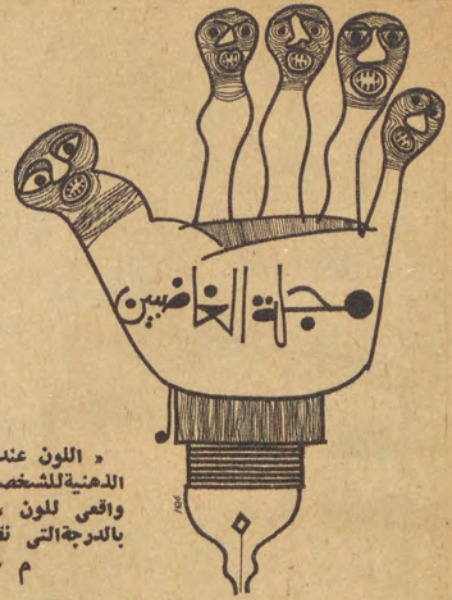 مجلة الغاضبين
« اللون عند
الذهنية للشخص
واقعى للون ،
بالدرجة التى نق
م